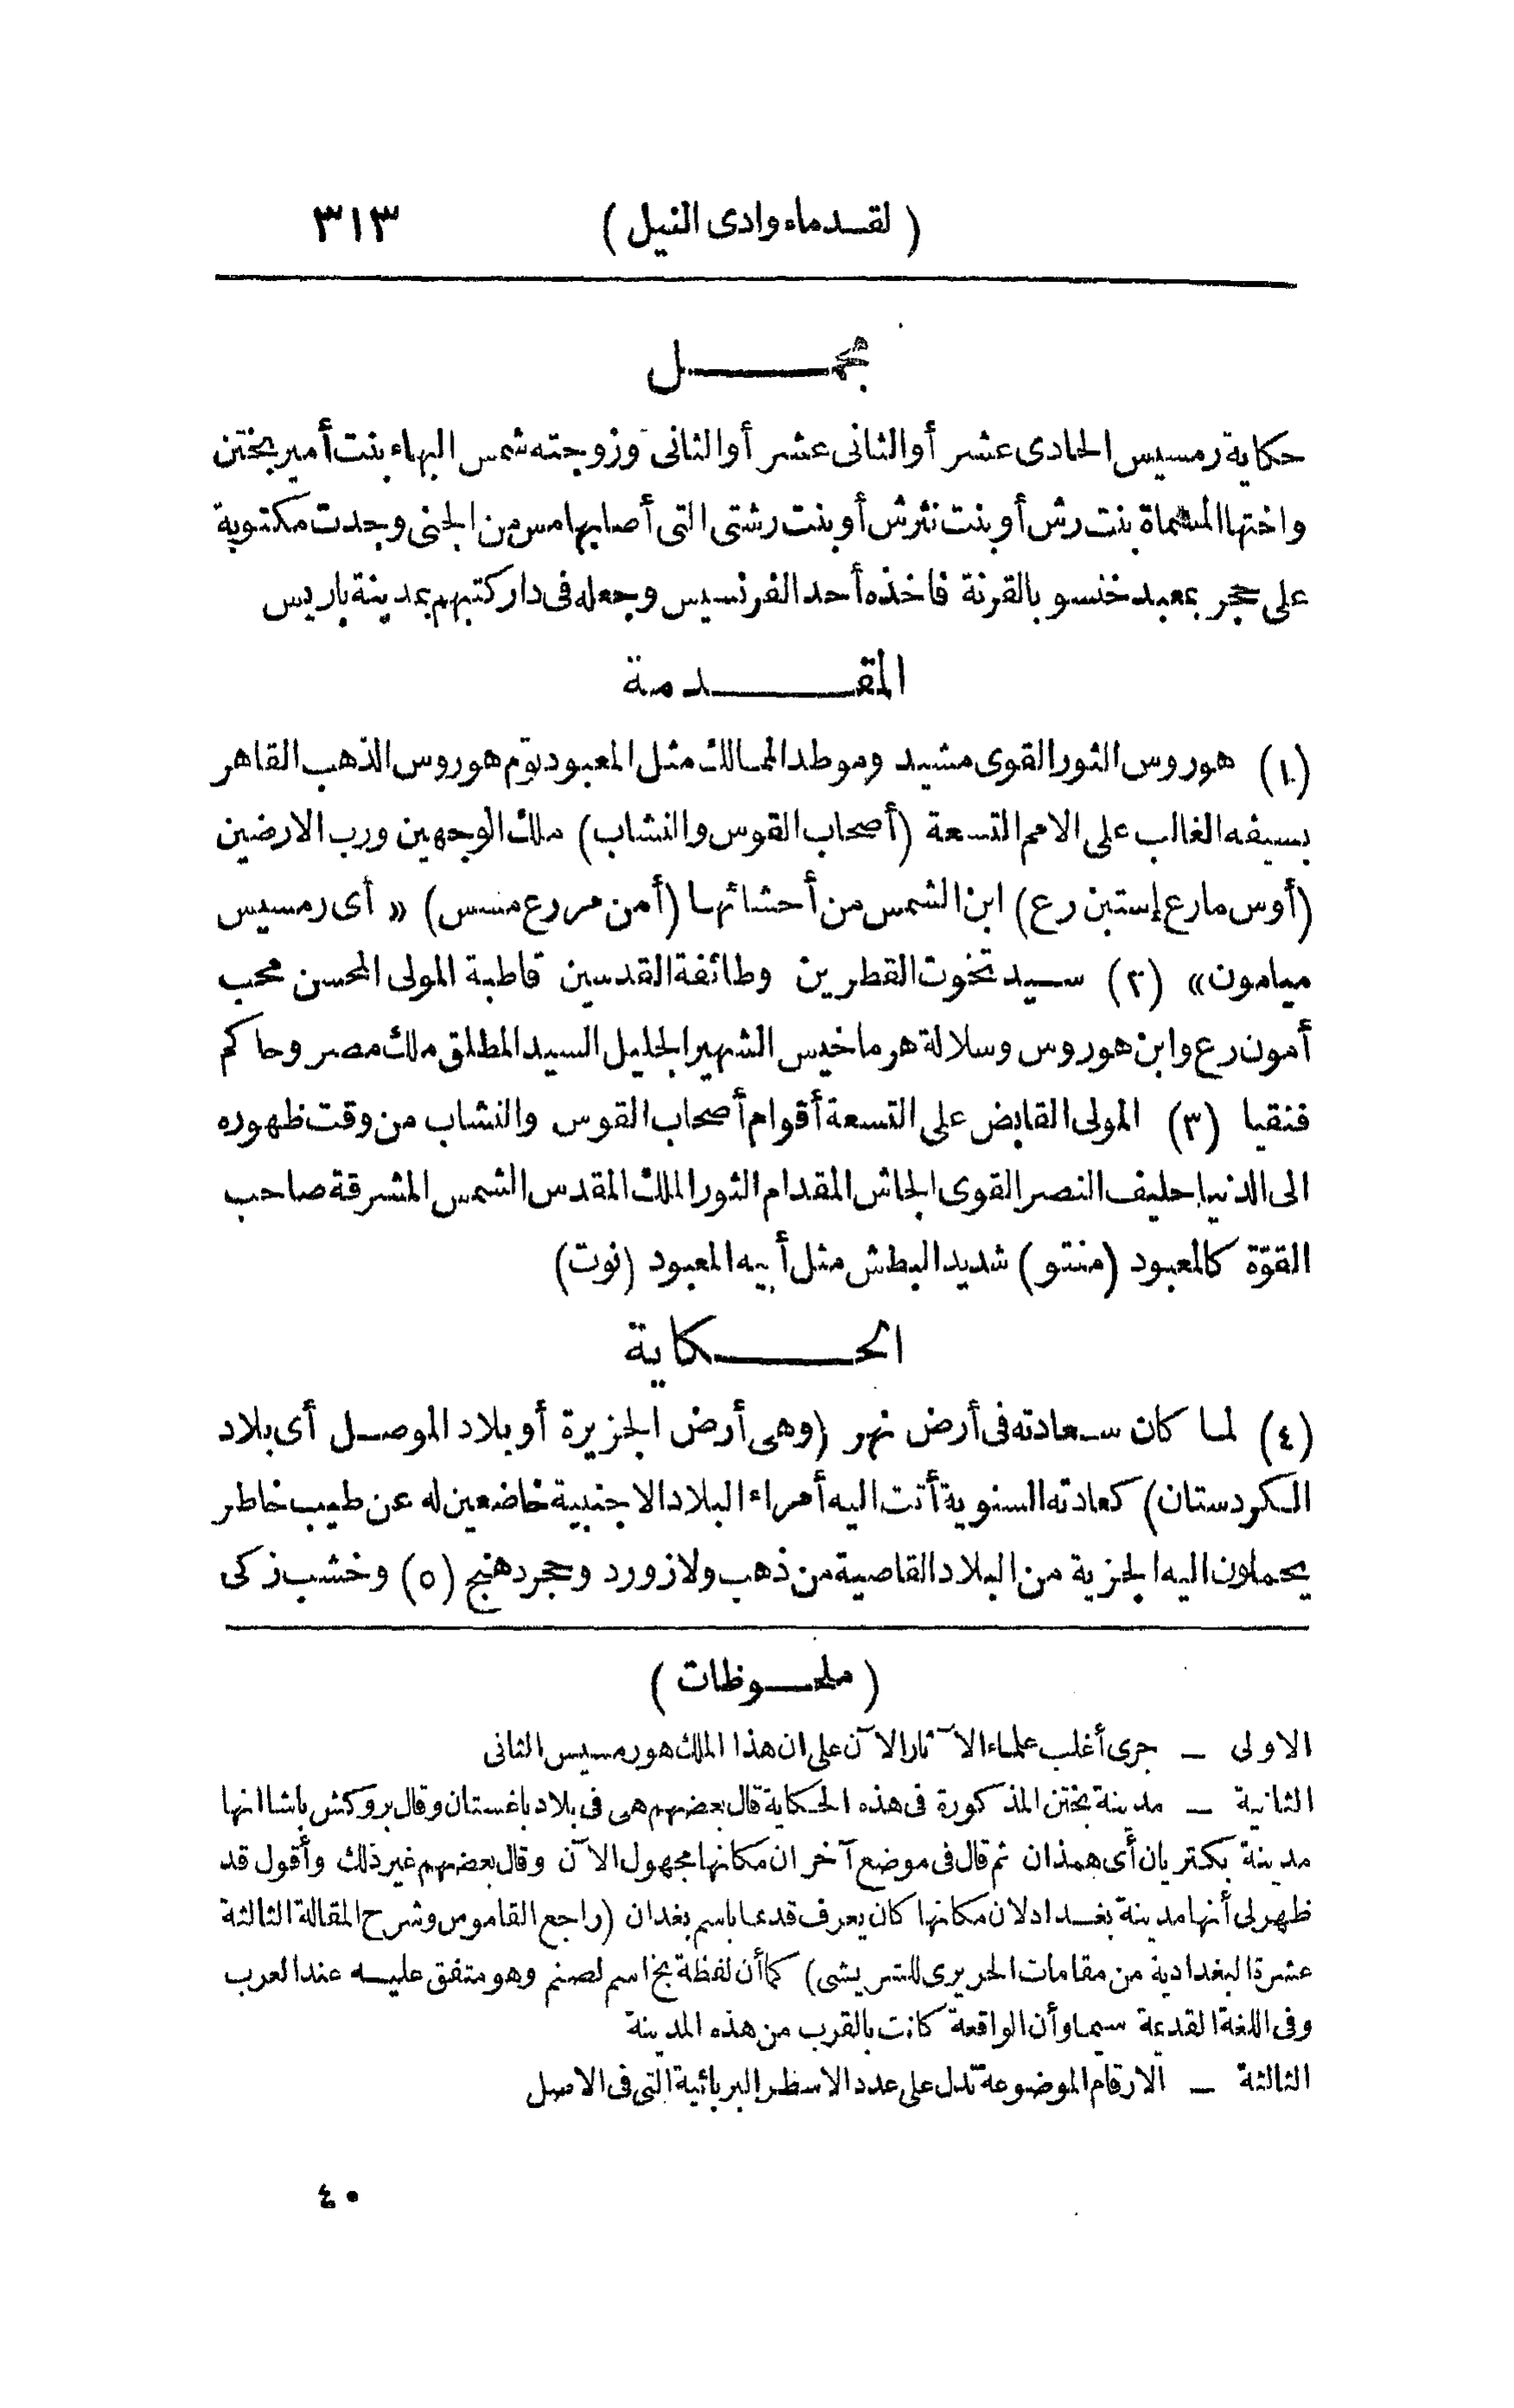 ( لقدماء وادى النيل ) ٣١٣
مجمل
حكاية رمسيس الحادى عشر أو الثانى عشر أو الثانى وزوجته شمس البهاء بنت أمير بختن
واختها المسماة بنت رش أو بنت نثرش أو بنت رشتى التى أصابها مس من الجنى وجدت مكتوبة
على حجر بمعبد خنسو بالقرنة فاخذه أحد الفرنسيس وجعله فى دار كتبهم بمدينة باريس
المقدمة
(١) هوروس الثور القوى مشيد وموطد الممالك مثل المعبود توم هوروس الذهب القاهر
بسيفه الغالب على الامم التسعة (أصحاب القوس والنشاب) ملك الوجهين ورب الارضين
(أوس مارع إستبن رع) ابن الشمس من أحشائها (أمن مررع مسس) « أى رمسيس
ميامون» (٢) سيد تخوت القطرين وطائفة القدسين قاطبة المولى المحسن محب
أمون رع وابن هوروس وسلالة هرماخيس الشهير الجليل السيد المطلق ملك مصر وحاكم
فنقيا (٣) المولى القابض على التسعة أقوام أصحاب القوس والنشاب من وقت ظهوره
الى الدنيا حليف النصر القوى الجاش المقدام الثور الملك المقدس الشمس المشرقة صاحب
القوّة كالمعبود (منتو) شديد البطش مثل أبيه المعبود (نوت)
الحكاية
(٤) لما كان سعادته فى أرض نهر (وهى أرض الجزيرة أو بلاد الموصل أى بلاد
الكردستان) كعادته السنوية أتت اليه أمراء البلاد الاجنبية خاضعين له عن طيب خاطر
يحملون اليه الجزية من البلاد القاصية من ذهب ولازورد وحجر دهنج (٥) وخشب زكى
( ملحوظات )
الاولى — جرى أغلب علماء الآثار الآن على ان هذا الملك هو رمسيس الثانى
الثانية — مدينة بختن المذكورة فى هذه الحكاية قال بعضهم هى فى بلاد باغستان وقال بروكش باشا انها
مدينة بكتريان أى همذان ثم قال فى موضع آخر ان مكانها مجهول الآن وقال بعضهم غير ذلك وأقول قد
ظهر لى أنها مدينة بغداد لان مكانها كان يعرف قديما باسم بغدان (راجع القاموس وشرح المقالة الثالثة
عشرة البغدادية من مقامات الحريرى للشريشى) كما أن لفظة بخ اسم لصنم وهو متفق عليه عند العرب
وفى اللغة القديمة سيما وأن الواقعة كانت بالقرب من هذه المدينة
الثالثة — الارقام الموضوعة تدل على عدد الاسطر البربائية التى فى الاصل
٤٠